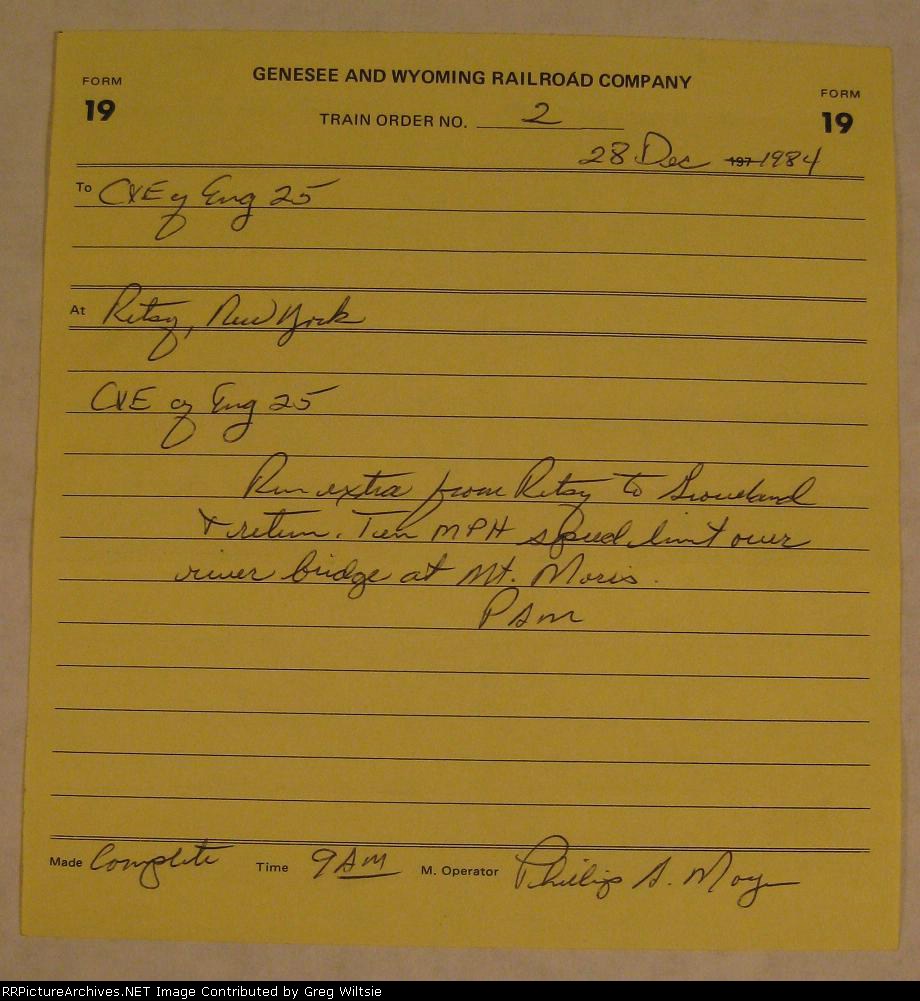 GENESEE AND WYOMING RAILROAD COMPANY
FORM 19
FORM 19
TRAIN ORDER NO. 2
28 Dec 197 1984
To C&E of Eng 25
At Retsof, New York
C&E of Eng 25
Run extra from Retsof to Groveland
& return. Ten MPH speed limit over
river bridge at Mt. Moris.
PAM
Made Complete Time 9 AM M. Operator Phillip A.
RailPictureArchives.NET Image Contributed by Greg Wiltsie